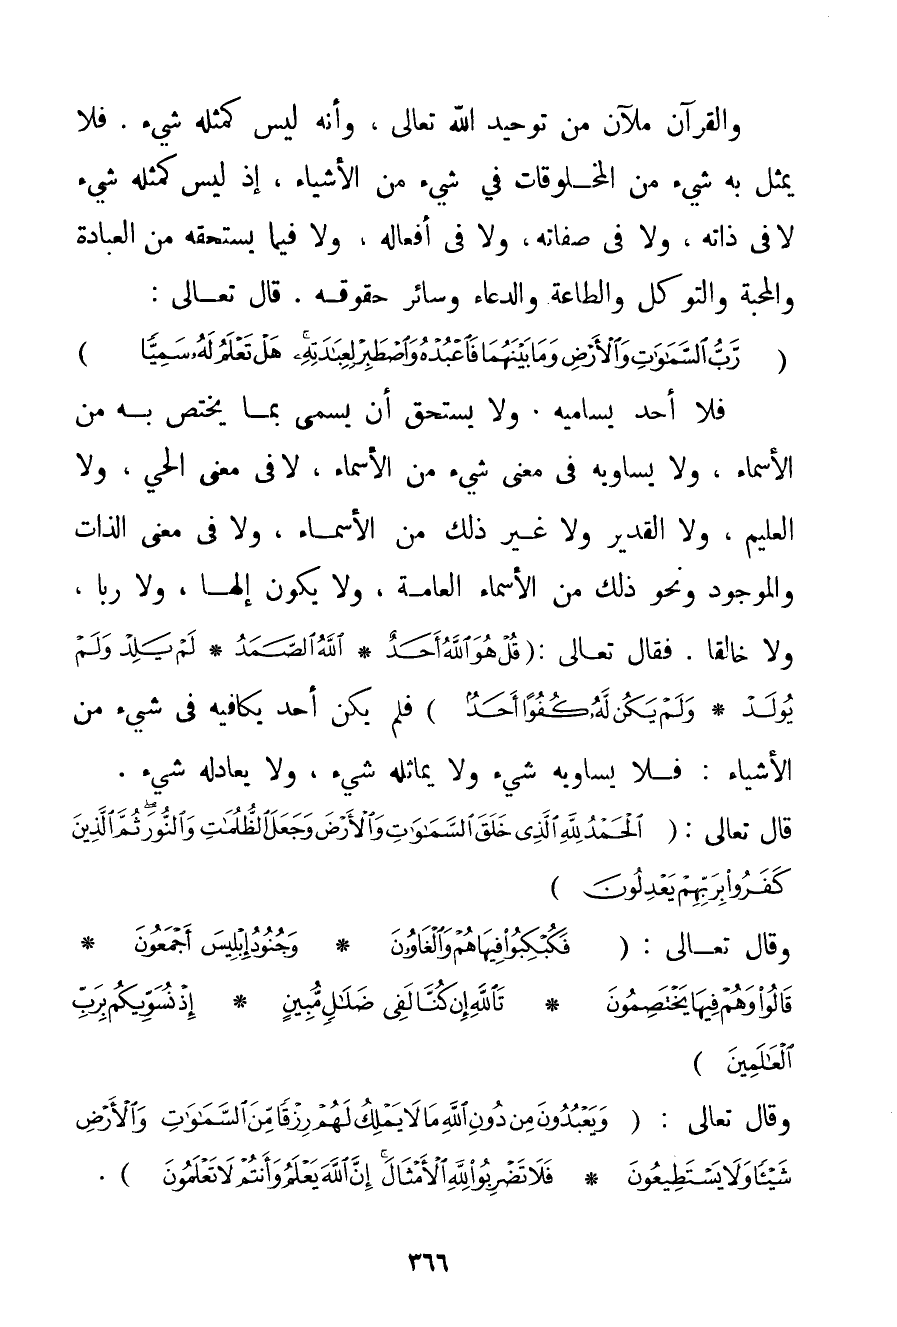 والقرآن ملآن من توحيد الله تعالى ، وأنه ليس كمثله شيء . فلا
يمثل به شيء من المخلوقات في شيء من الأشياء ، إذ ليس كمثله شيء
لا في ذاته ، ولا في صفاته ، ولا في أفعاله ، ولا فيما يستحقه من العبادة
والمحبة والتوكل والطاعة والدعاء وسائر حقوقه . قال تعالى :
( رَّبُّ ٱلسَّمَٰوَٰتِ وَٱلْأَرْضِ وَمَا بَيْنَهُمَا فَٱعْبُدْهُ وَٱصْطَبِرْ لِعِبَٰدَتِهِۦۚ هَلْ تَعْلَمُ لَهُۥ سَمِيًّا )
فلا أحد يساميه . ولا يستحق أن يسمى بما يختص به من
الأسماء ، ولا يساويه في معنى شيء من الأسماء ، لا في معنى الحي ، ولا
العليم ، ولا القدير ولا غير ذلك من الأسماء ، ولا في معنى الذات
والموجود ونحو ذلك من الأسماء العامة ، ولا يكون إلها ، ولا ربا ،
ولا خالقا . فقال تعالى :( قُلْ هُوَ ٱللَّهُ أَحَدٌ * ٱللَّهُ ٱلصَّمَدُ * لَمْ يَلِدْ وَلَمْ
يُولَدْ * وَلَمْ يَكُن لَّهُۥ كُفُوًا أَحَدٌ ) فلم يكن أحد يكافيه في شيء من
الأشياء : فلا يساويه شيء ولا يماثله شيء ، ولا يعادله شيء .
قال تعالى :( ٱلْحَمْدُ لِلَّهِ ٱلَّذِى خَلَقَ ٱلسَّمَٰوَٰتِ وَٱلْأَرْضَ وَجَعَلَ ٱلظُّلُمَٰتِ وَٱلنُّورَۖ ثُمَّ ٱلَّذِينَ
كَفَرُوا۟ بِرَبِّهِمْ يَعْدِلُونَ )
وقال تعالى : ( فَكُبْكِبُوا۟ فِيهَا هُمْ وَٱلْغَاوُۥنَ * وَجُنُودُ إِبْلِيسَ أَجْمَعُونَ *
قَالُوا۟ وَهُمْ فِيهَا يَخْتَصِمُونَ * تَٱللَّهِ إِن كُنَّا لَفِى ضَلَٰلٍ مُّبِينٍ * إِذْ نُسَوِّيكُم بِرَبِّ
ٱلْعَٰلَمِينَ )
وقال تعالى : ( وَيَعْبُدُونَ مِن دُونِ ٱللَّهِ مَا لَا يَمْلِكُ لَهُمْ رِزْقًا مِّنَ ٱلسَّمَٰوَٰتِ وَٱلْأَرْضِ
شَيْـًٔا وَلَا يَسْتَطِيعُونَ * فَلَا تَضْرِبُوا۟ لِلَّهِ ٱلْأَمْثَالَۚ إِنَّ ٱللَّهَ يَعْلَمُ وَأَنتُمْ لَا تَعْلَمُونَ ) .
٣٦٦